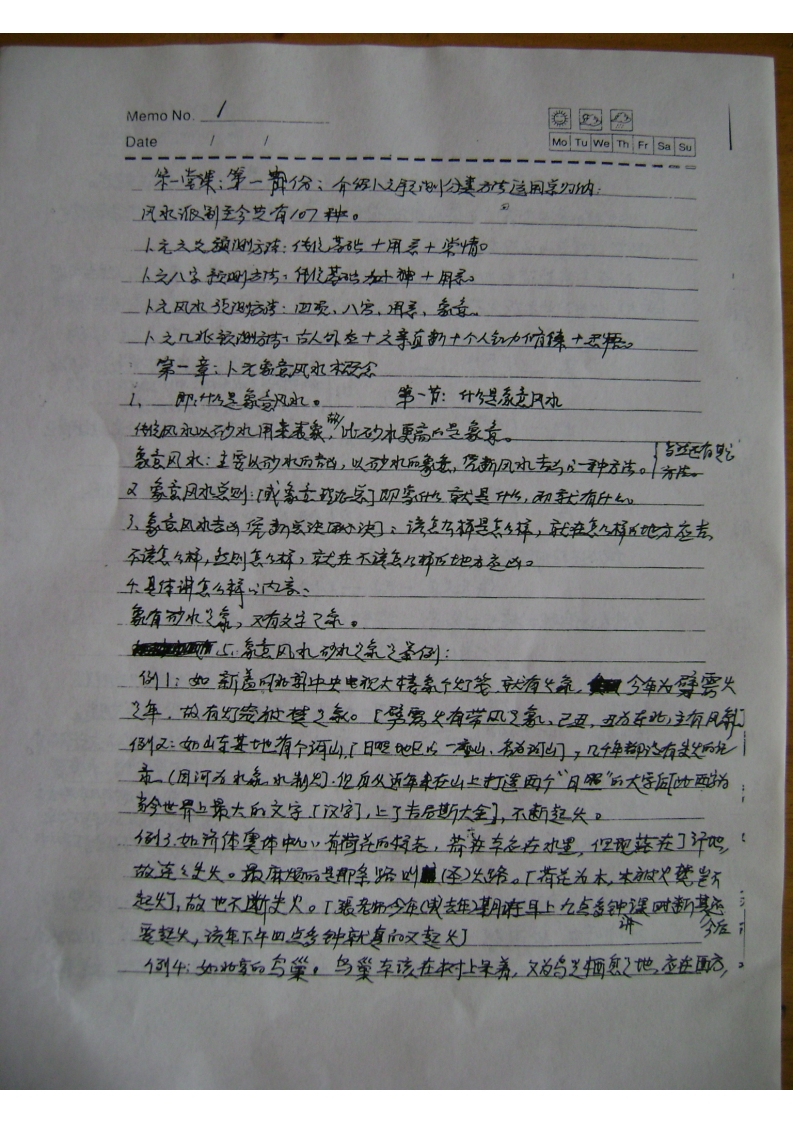 Memo No. 1
Date / /
Mo Tu We Th Fr Sa Su
第一堂课：第一部份：介绍卜元预测分类方法运用宗归纳：
风水派别至今共有107种。
卜元六爻预测方法：传统基础＋用系＋常情。
卜元八字预测方法：传统基础 十神＋用系。
卜元风水预测方法：四项、八宫、用系、象意。
卜元 预测方法：古人外应＋六亲直断＋个人 ＋思维。
第一章：卜元象意风水概念
1、即：什么是象意风水。 第一节：什么是象意风水
传统风水以砂水用来表象，故比砂水更高的是象意。
象意风水：主要以砂水的吉凶，以砂水的象意，凭断风水吉凶的一种方法。 方法。
2 象意风水总则：[或象意 宗]即象什么就是什么，
3、象意风水吉凶凭断总决[ 决]：该怎么样是怎么样，就在怎么样的地方应吉，
不该怎么样，然则怎么样，就在不该怎么样的地方应凶。
4.具体讲怎么样的内容：
象有砂水之象，又有文字之象。
5.象意风水砂水之象之举例：
例1：如新盖 中央电视大楼象个灯笼，就有火象， 今年为霹雳火
之年，故有灯笼被焚之象。[霹雳火有带风之象，己丑，丑为东北，主有风
例2：如山东某地有个河山，[日照地区的一座山，名为河山]，几千年都没有失火的记
录。(因河为水象，水制火)。但自从近年来在山上打造两个“日照”的大字后[此两字为
当今世界上最大的文字[汉字]，上了吉尼斯大全]，不断起火。
例3.如济体奥体中心，有荷花的标志，荷花本应在水里，但现落在了汗地，
故连连失火。最麻烦的是那条路叫 (圣)火路。[荷花为木，木被火焚岂不
起火]，故也不断失火。[张老师今年(或去年)某月 早上九点多钟讲课时断其还
要起火，该年下午四点多钟就真的又起火]
今后
例4：如北京的鸟巢。鸟巢本该在树上呆着，又为鸟是栖息之地，应在西方，